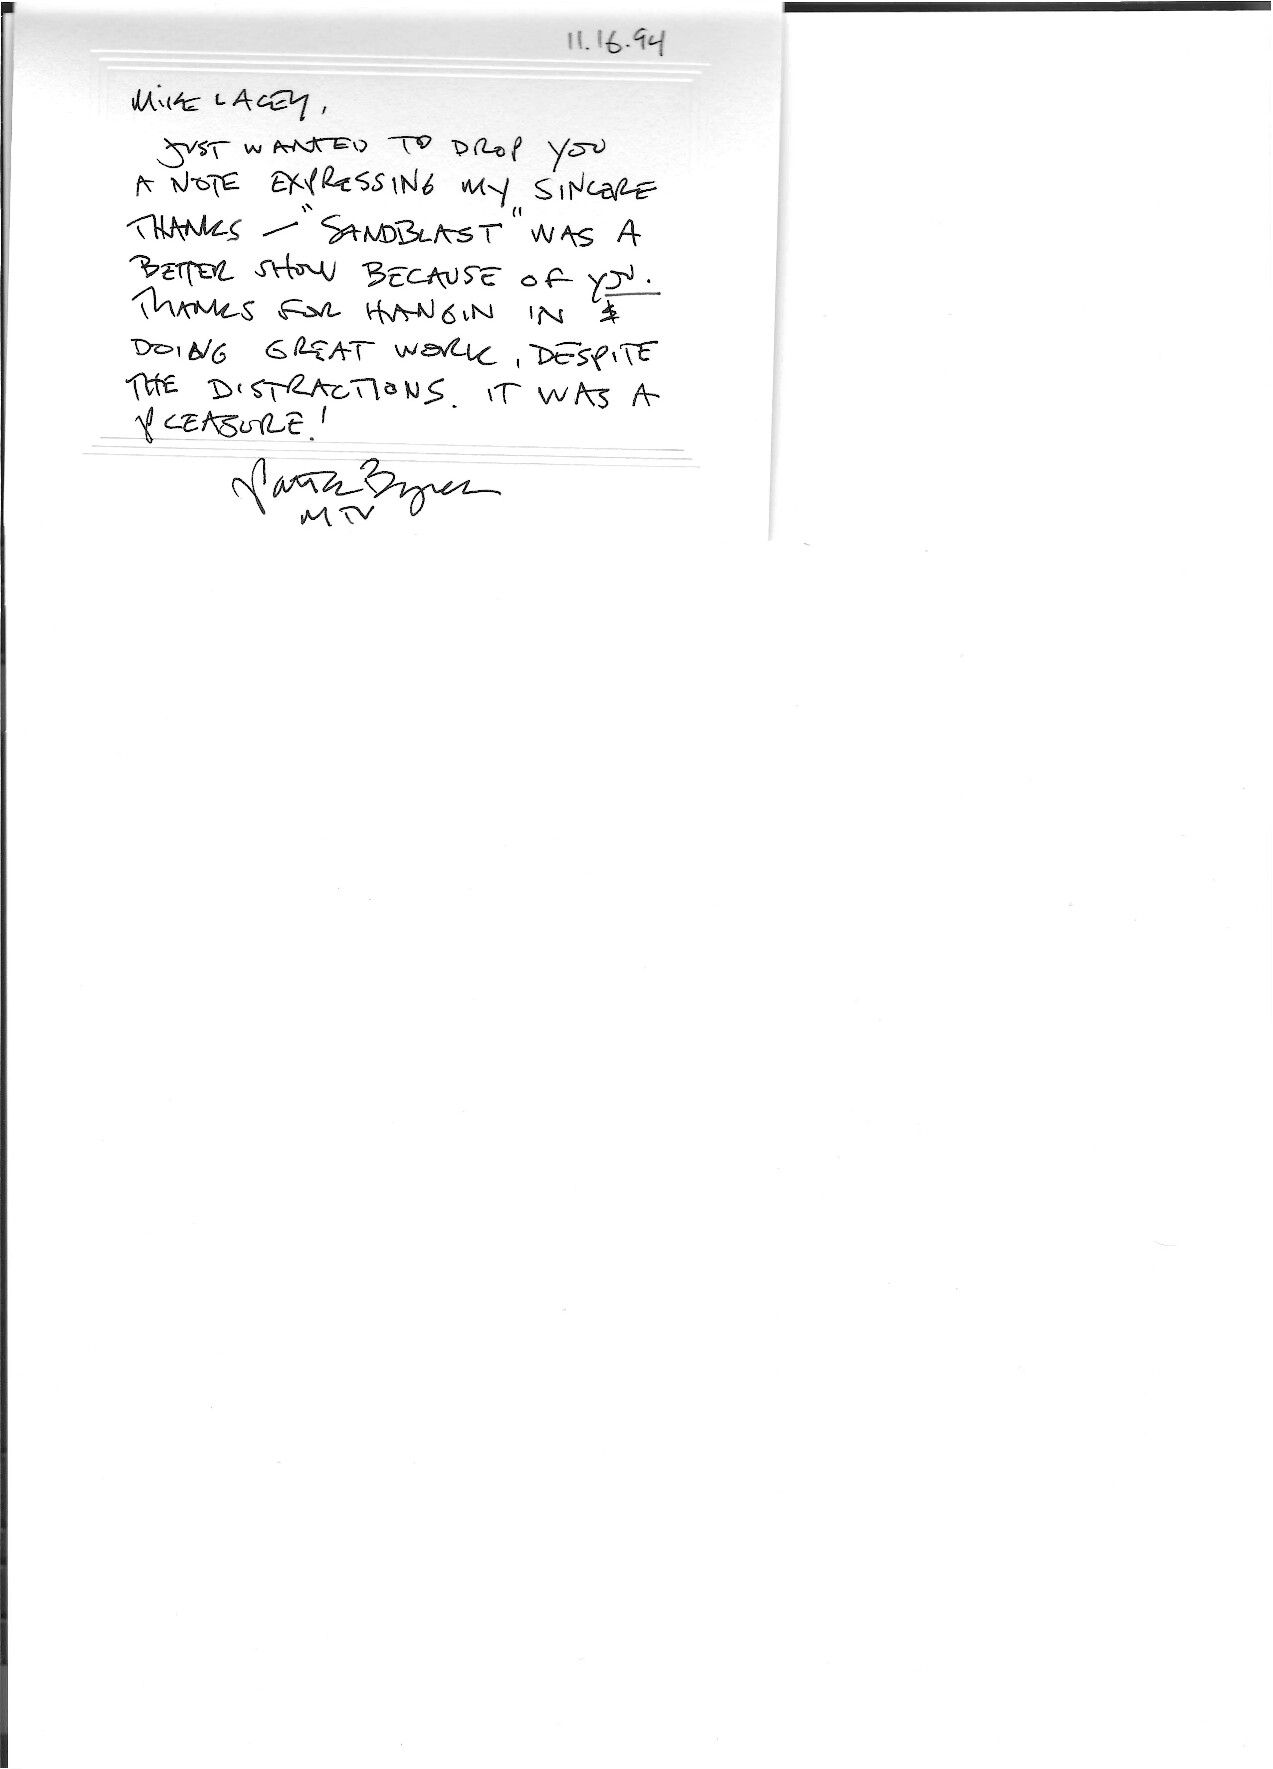 11.16.94
MIKE LACEY,
JUST WANTED TO DROP YOU
A NOTE EXPRESSING MY SINCERE
THANKS — "SANDBLAST" WAS A
BETTER SHOW BECAUSE OF YOU.
THANKS FOR HANGIN IN &
DOING GREAT WORK, DESPITE
THE DISTRACTIONS. IT WAS A
PLEASURE!
MTV